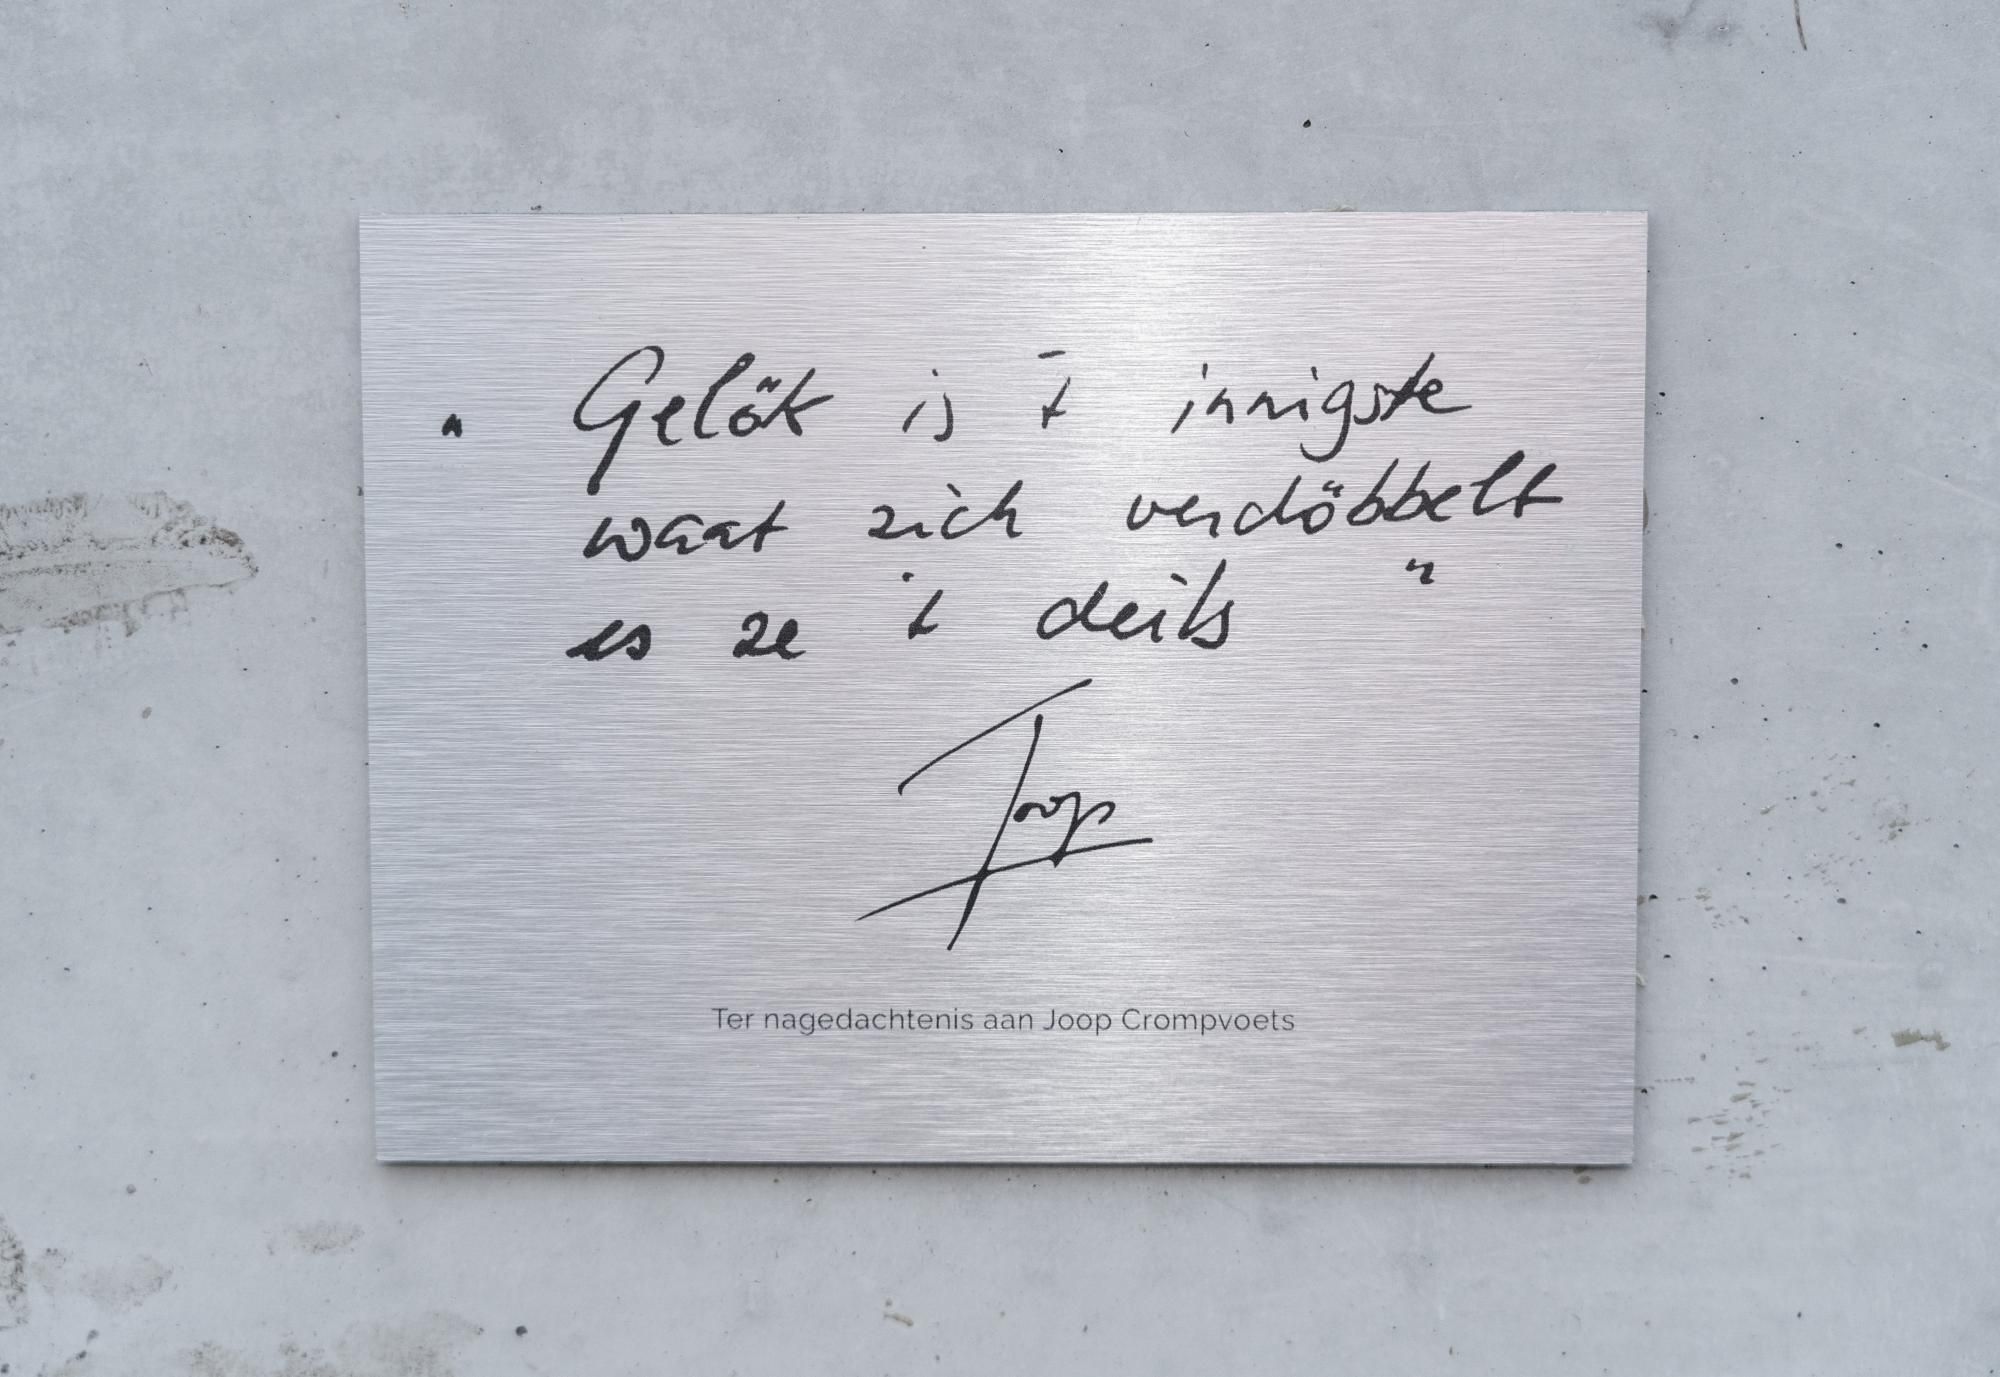 " Gelök is 't innigste
waat zich verdöbbelt
es ze 't deils "
Joop
Ter nagedachtenis aan Joop Crompvoets